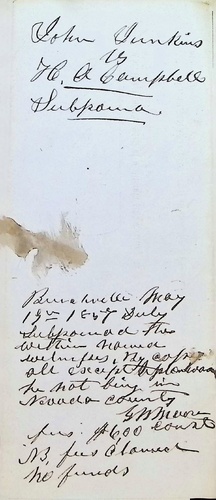 John Junkins
vs
H. A Campbell
Subpoena
May
Duly
Subpoenad the
within named
witnesses, By copy
all except
he not being in
Nevada county
G W Moore
fees: $6.00 const
NB, fees claimed
no funds